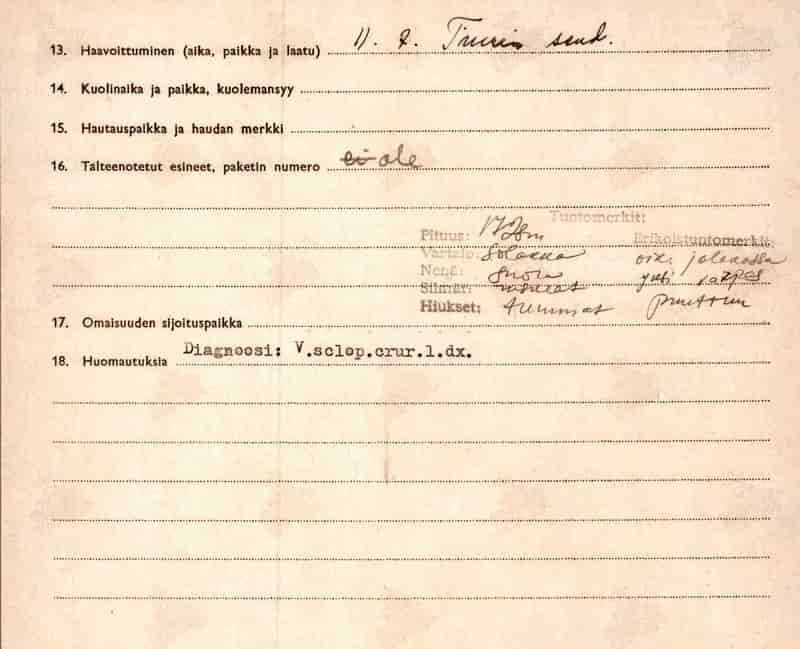 13. Haavoittuminen (aika, paikka ja laatu) 11. 7. Tiurin seud.
14. Kuolinaika ja paikka, kuolemansyy
15. Hautauspaikka ja haudan merkki
16. Talteenotetut esineet, paketin numero ei ole
Tuntomerkit:
Pituus:
Erikoistuntomerkit:
Vartalo: solakka
oik. jalassa
Nenä: suora
Silmät:
Hiukset: tummat
17. Omaisuuden sijoituspaikka
18. Huomautuksia Diagnoosi: V.sclop.crur.l.dx.